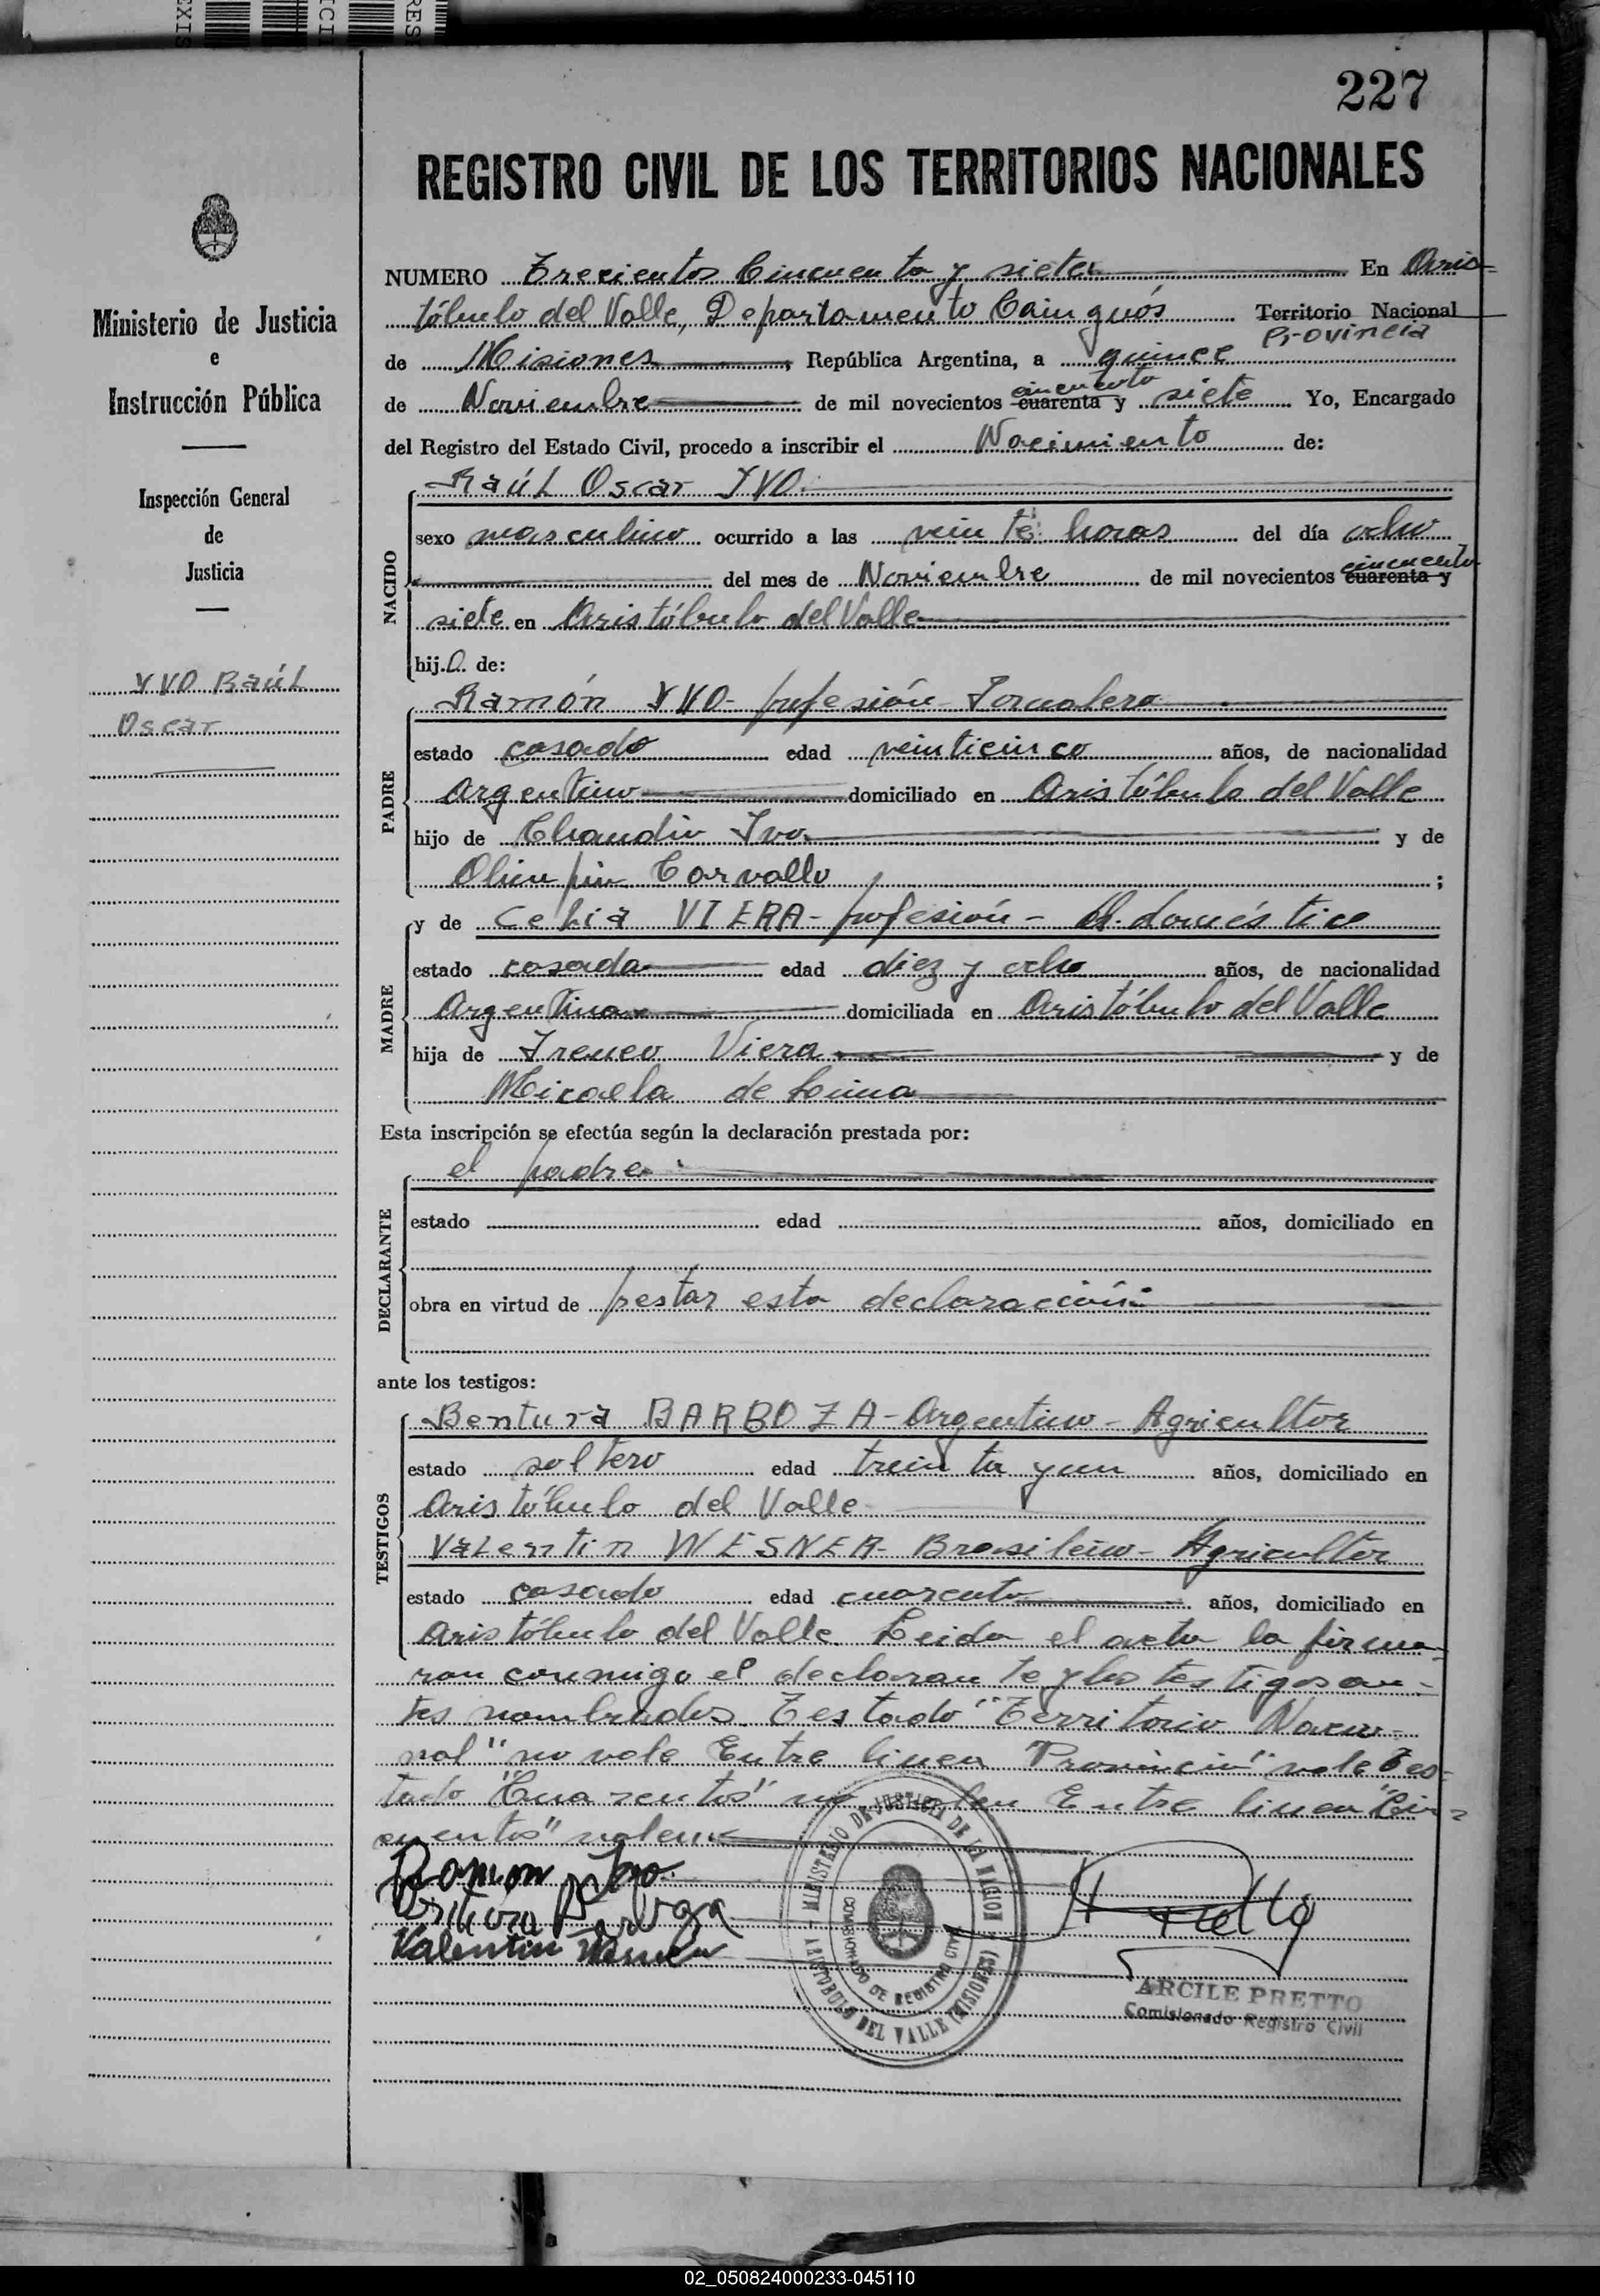 227
REGISTRO CIVIL DE LOS TERRITORIOS NACIONALES
Ministerio de Justicia
e
Instrucción Pública
Inspección General
de
Justicia
YVO Raúl
Oscar
NUMERO Trecientos Cincuenta y siete En Aris-
tóbulo del Valle, Departamento Cainguás Territorio Nacional
Provincia
de Misiones, República Argentina, a quince
cincuenta
de Noviembre de mil novecientos cuarenta y siete Yo, Encargado
del Registro del Estado Civil, procedo a inscribir el Nacimiento de:
NACIDO
Raúl Oscar YVO.
sexo masculino ocurrido a las veinte horas del día ocho
cincuenta
del mes de Noviembre de mil novecientos cuarenta y
siete en Aristóbulo del Valle
hij.o. de:
PADRE
Ramón YVO - profesión Jornalero
estado casado edad veinticinco años, de nacionalidad
Argentino domiciliado en Aristóbulo del Valle
hijo de Claudio Ivo y de
Olimpia Carvallo ;
MADRE
y de Celia VIERA - profesión - Q. doméstico
estado casada edad diez y ocho años, de nacionalidad
Argentina domiciliada en Aristóbulo del Valle
hija de Ireneo Viera y de
Micaela de Lima
Esta inscripción se efectúa según la declaración prestada por:
DECLARANTE
el padre
estado edad años, domiciliado en
obra en virtud de prestar esta declaración
ante los testigos:
TESTIGOS
Bentura BARBOZA - Argentino - Agricultor
estado soltero edad treinta y un años, domiciliado en
Aristóbulo del Valle
Valentin WESNER - Brasileño - Agricultor
estado casado edad cuarenta años, domiciliado en
Aristóbulo del Valle. Leida el acta la firma-
ron conmigo el declarante y los testigos an-
tes nombrados. Testado "Territorio Nacio-
nal" no vale Entre linea "Provincia" vale Tes-
tado "Cuarentas" no valen Entre linea "Cin-
cuentas" valen
Ramon Ivo
Valentin
MINISTERIO DE JUSTICIA DE LA NACION
ARISTOBULO DEL VALLE (MISIONES)
COMISIONADO DE REGISTRO CIVIL
ARCILE PRETTO
Comisionado Registro Civil
02_050824000233-045110